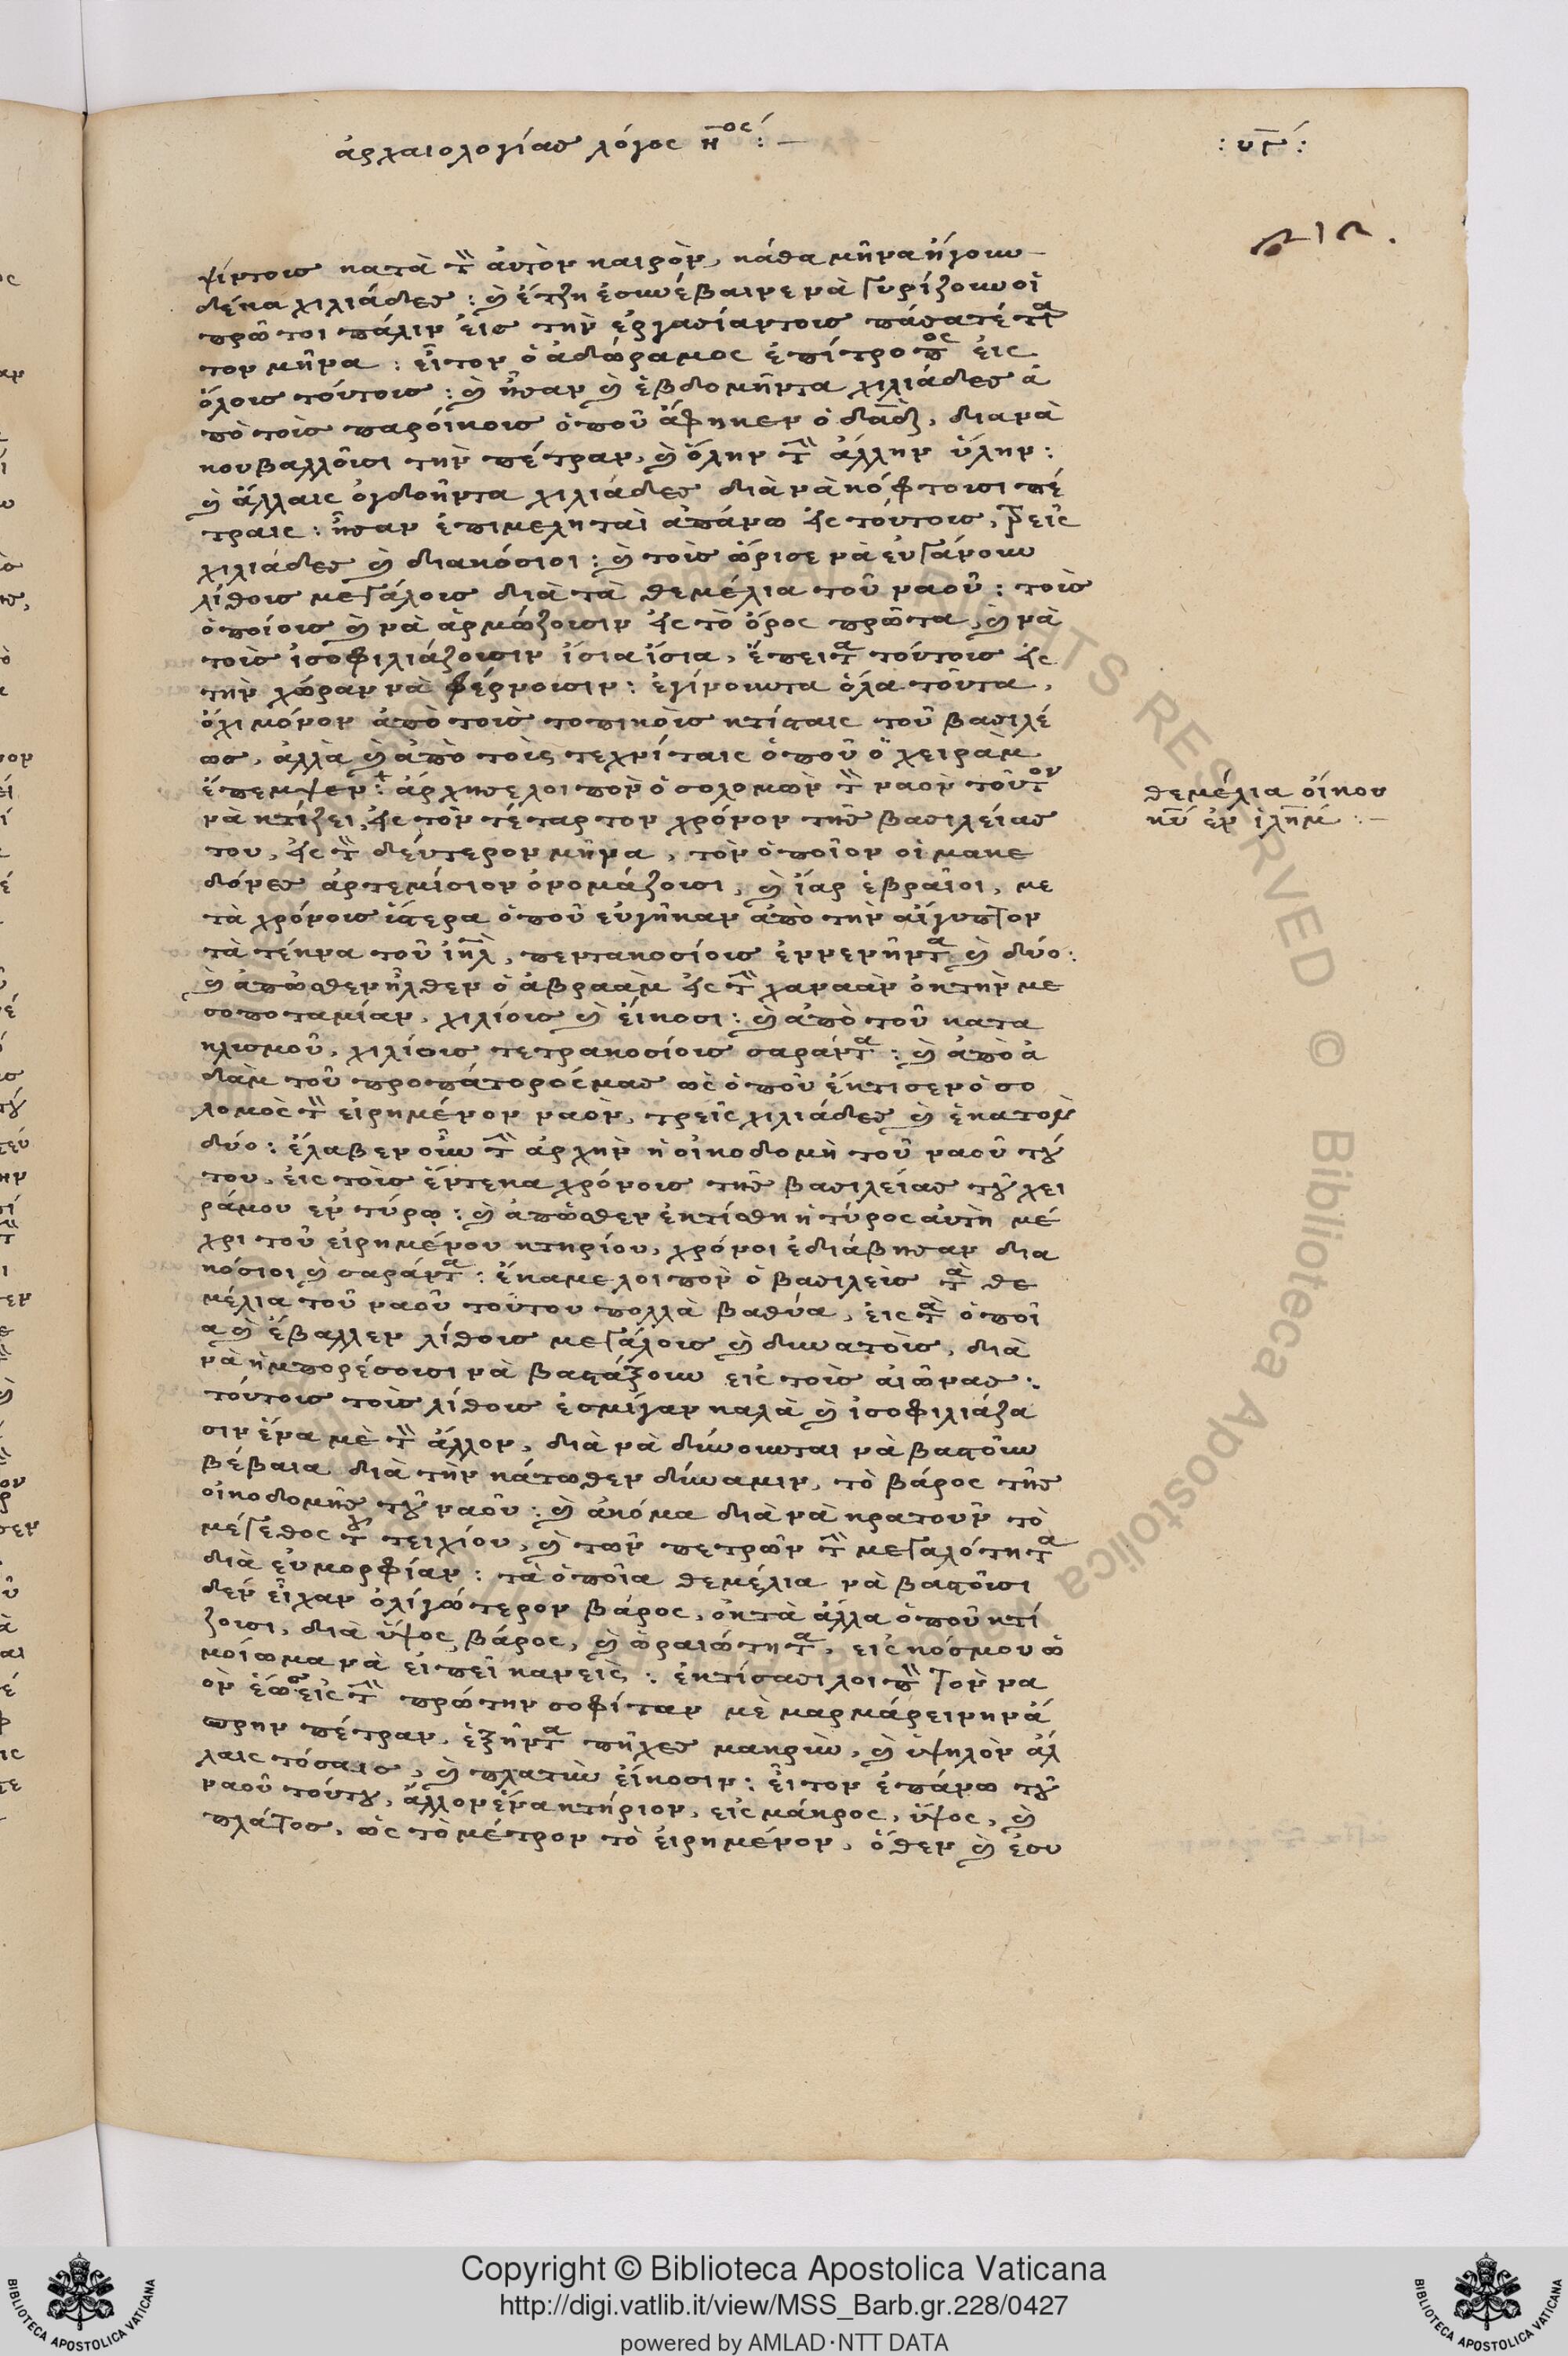 ἀρχαιολογίας λόγος η^ος :—
ψίντους κατὰ τὸν αὐτὸν καιρὸν, κάθα μῆνα ἤγουν
δέκα χιλιάδες : καὶ ἔτζη ἐσυνέβαινε νὰ γυρίζουν οἱ
πρῶτοι πάλιν εἰς τὴν ἐργασίαντους πάσα τέταρ
τον μῆνα : εἶτον ὁ ἀδώραμος ἐπίτροπος εἰς
ὅλους τούτους : καὶ ἦσαν καὶ ἑβδομῆντα χιλιάδες ἀ
πὸ τοὺς παρόικους ὁποῦ ἄφηκεν ὁ δαδ, διανὰ
κουβαλλοῦσι τὴν πέτραν, καὶ ὅλην τὴν ἄλλην ὕλην :
καὶ ἄλλαις ὀγδοῆντα χιλιάδες διὰ νὰ κόφτουσι πέ
τραις : ἦσαν ἐπιμεληταὶ ἀπάνω εἰς τούτους, τρεῖς
χιλιάδες καὶ διακόσιοι : καὶ τοὺς ὥρισε νὰ εὐγάνουν
λίθους μεγάλους διὰ τὰ θεμέλια τοῦ ναοῦ : τοὺς
ὁποίους καὶ νὰ ἁρμώζουσιν εἰς τὸ ὄρος πρῶτα, καὶ νὰ
τοὺς ἰσοφιλιάζουσιν ἴσια ἴσια, ἔπειτα τούτους εἰς
τὴν χώραν νὰ φέρνουσιν : ἐγίνουντα ὅλα τοῦτα,
ὄχι μόνον ἀπὸ τοὺς τοπικοὺς κτίσταις τοῦ βασιλέ
ως, ἀλλὰ καὶ ἀπὸ τοὺς τεχνίταις ὁποῦ ὁ χειρὰμ
ἔπεμψεν : ἄρχησε λοιπὸν ὁ σολομὼν τὸν ναὸν τοῦτον
νὰ κτίζει, εἰς τὸν τέταρτον χρόνον τῆς βασιλείας
του, εἰς τὸν δεύτερον μῆνα, τὸν ὁποῖον οἱ μακε
δόνες ἀρτεμίσιον ὀνομάζουσι, καὶ ἴαρ ἑβραῖοι, με
τὰ χρόνους ὕστερα ὁποῦ εὐγῆκαν ἀπὸ τὴν αἴγυπτον
τὰ τέκνα τοῦ ἰηλ, πεντακοσίους ἐννενῆντα καὶ δύο :
καὶ ἀπώθεν ἦλθεν ὁ ἀβραὰμ εἰς τὴν χαναὰν ἐκ τὴν με
σοποταμίαν, χιλίους καὶ εἴκοσι : καὶ ἀπὸ τοῦ κατα
κλισμοῦ, χιλίους τετρακοσίους σαράντα : καὶ ἀπὸ ἀ
δὰμ τοῦ προπάτορός μας ὡς ὁποῦ ἔκτισεν ὁ σο
λομὸς τὸν εἰρημένον ναὸν, τρεῖς χιλιάδες καὶ ἑκατὸν
δύο : ἔλαβεν οὖν τὴν ἀρχὴν ἡ οἰκοδομὴ τοῦ ναοῦ τού
του, εἰς τοὺς ἕντεκα χρόνους τῆς βασιλείας τοῦ χει
ράμου ἐν τύρῳ : καὶ ἀπῶθεν ἐκτίσθη ἡ τύρος αὐτὴ μέ
χρι τοῦ εἰρημένου κτηρίου, χρόνοι ἐδιάβησαν δια
κόσιοι καὶ σαράντα : ἔκαμε λοιπὸν ὁ βασιλεὺς τὰ θε
μέλια τοῦ ναοῦ τούτου πολλὰ βαθύα, εἰς τὰ ὁποῖ
α καὶ ἔβαλλεν λίθους μεγάλους καὶ δυνατοὺς, διὰ
νὰ ἠμπορέσουσι νὰ βαστάξουν εἰς τοὺς αἰῶνας :
τούτους τοὺς λίθους ἐσμίγαν καλὰ καὶ ἰσοφιλιάζα
σιν ἕνα μὲ τὸν ἄλλον, διὰ νὰ δύνουνται νὰ βαστοῦν
βέβαια διὰ τὴν κάτωθεν δύναμιν, τὸ βάρος τῆς
οἰκοδομῆς τοῦ ναοῦ : καὶ ἀκόμα διὰ νὰ κρατοῦν τὸ
μέγεθος τοῦ τειχίου, καὶ τῶν πετρῶν τὴν μεγαλότητα
διὰ εὐμορφίαν : τὰ ὁποῖα θεμέλια νὰ βαστοῦσι
δὲν εἶχαν ὀλιγώτερον βάρος, ἐκ τὰ ἄλλα ὁποῦ κτί
ζουσι, διὰ ὕψος, βάρος, καὶ ὡραιώτητα, εἰς κόσμου ὁ
μοίωμα νὰ εἰπεῖ κανεὶς : ἐκτίσασι λοιπὸν τὸν να
ὸν ἕως εἰς τὴν πρώτην σοφίταν μὲ μαρμάρεινην ἄ
σπρην πέτραν, ἑξῆντα πῆχες μακρὺν, καὶ ὑψηλὸν ἀλ
λαις τόσαις, καὶ πλατὺν εἴκοσιν : εἶτον ἐπάνω τοῦ
ναοῦ τούτου, ἄλλον ἕνα κτήριον, εἰς μάκρος, ὕψος, καὶ
πλάτος, ὡς τὸ μέτρον τὸ εἰρημένον, ὅθεν καὶ ἐσυ
θεμέλια οἴκου
κυ ἐν ἰλημ :—
Copyright © Biblioteca Apostolica Vaticana
http://digi.vatlib.it/view/MSS_Barb.gr.228/0427
powered by AMLAD·NTT DATA
BIBLIOTECA APOSTOLICA VATICANA
BIBLIOTECA APOSTOLICA VATICANA